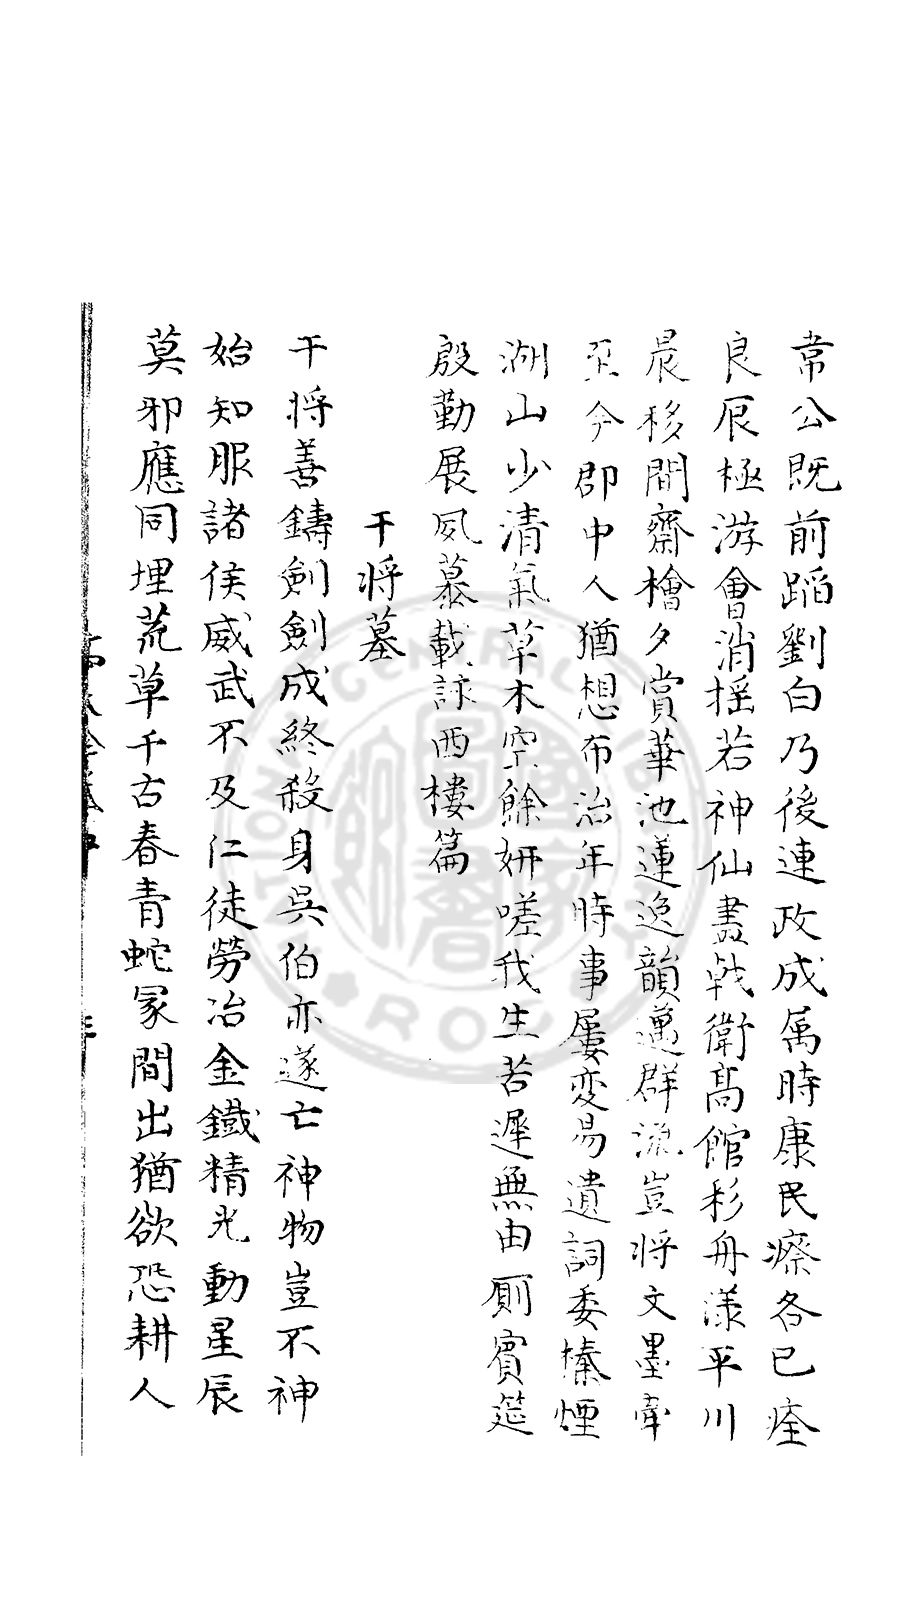 常公既前蹈劉白乃後連政成属時康民瘵各已痊
良辰極游會消摇若神仙畫戟衛髙館彩舟漾平川
晨移間齋檜夕賞華池蓮逸韻邁群流豈将文墨牽
至今郡中人猶想布治年時事屢变易遺詞委榛煙
湖山少清氣草木空餘妍嗟我生苦遲無由厠賓筵
殷勤展夙慕載詠西樓篇
干将墓
干将善鑄劍劍成終殺身吳伯亦遂亡神物豈不神
始知服諸侯威武不及仁徒勞冶金鐵精光動星辰
莫邪應同埋荒草千古春青蛇冢間出猶欲恐耕人
NATIONAL CENTRAL LIBRARY
R.O.C
國家圖書館